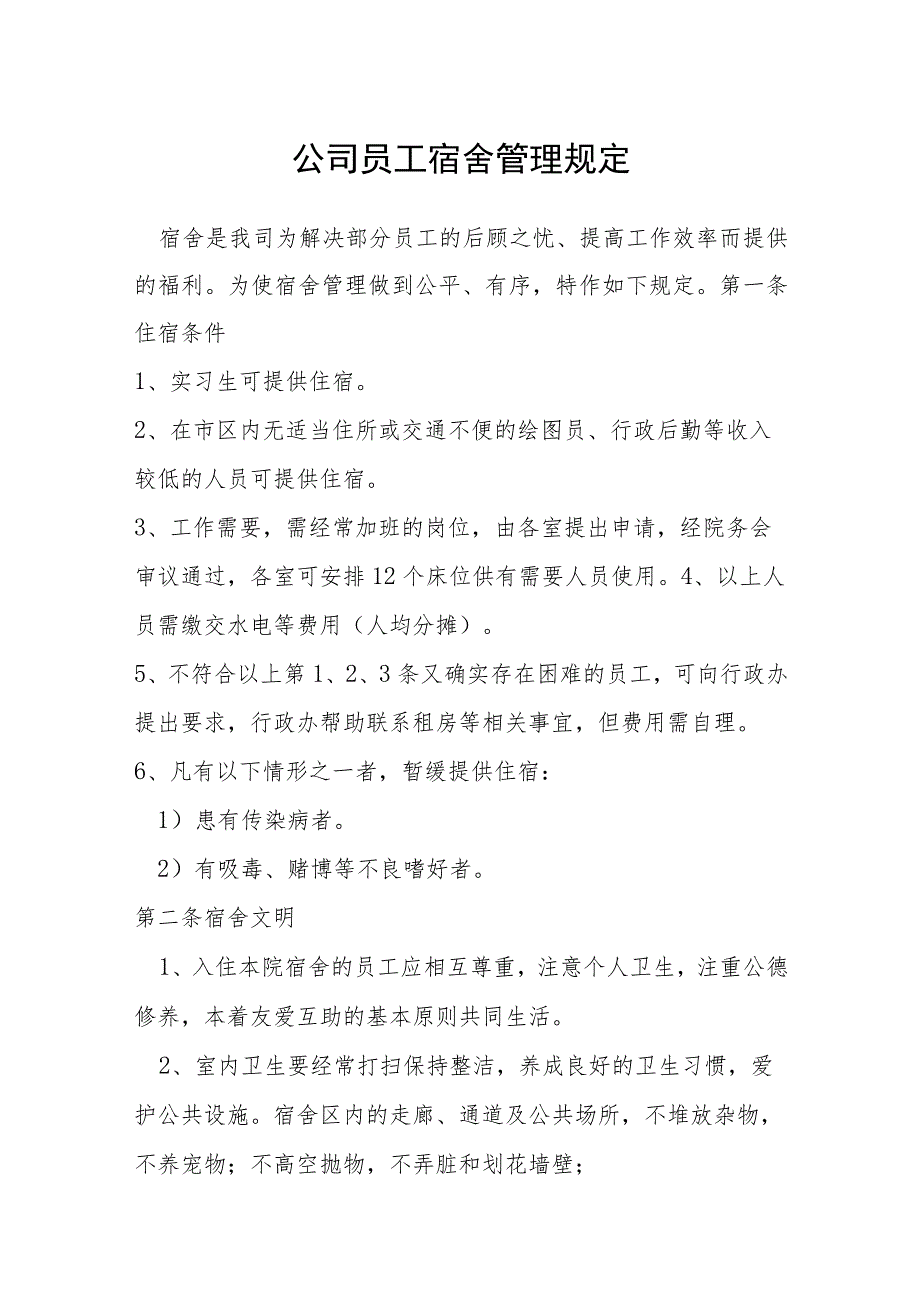 公司员工宿舍管理规定
宿舍是我司为解决部分员工的后顾之忧、提高工作效率而提供
的福利。为使宿舍管理做到公平、有序，特作如下规定。第一条
住宿条件
1、实习生可提供住宿。
2、在市区内无适当住所或交通不便的绘图员、行政后勤等收入
较低的人员可提供住宿。
3、工作需要，需经常加班的岗位，由各室提出申请，经院务会
审议通过，各室可安排12个床位供有需要人员使用。4、以上人
员需缴交水电等费用（人均分摊）。
5、不符合以上第1、2、3条又确实存在困难的员工，可向行政办
提出要求，行政办帮助联系租房等相关事宜，但费用需自理。
6、凡有以下情形之一者，暂缓提供住宿：
1）患有传染病者。
2）有吸毒、赌博等不良嗜好者。
第二条宿舍文明
1、入住本院宿舍的员工应相互尊重，注意个人卫生，注重公德
修养，本着友爱互助的基本原则共同生活。
2、室内卫生要经常打扫保持整洁，养成良好的卫生习惯，爱
护公共设施。宿舍区内的走廊、通道及公共场所，不堆放杂物，
不养宠物；不高空抛物，不弄脏和划花墙壁；